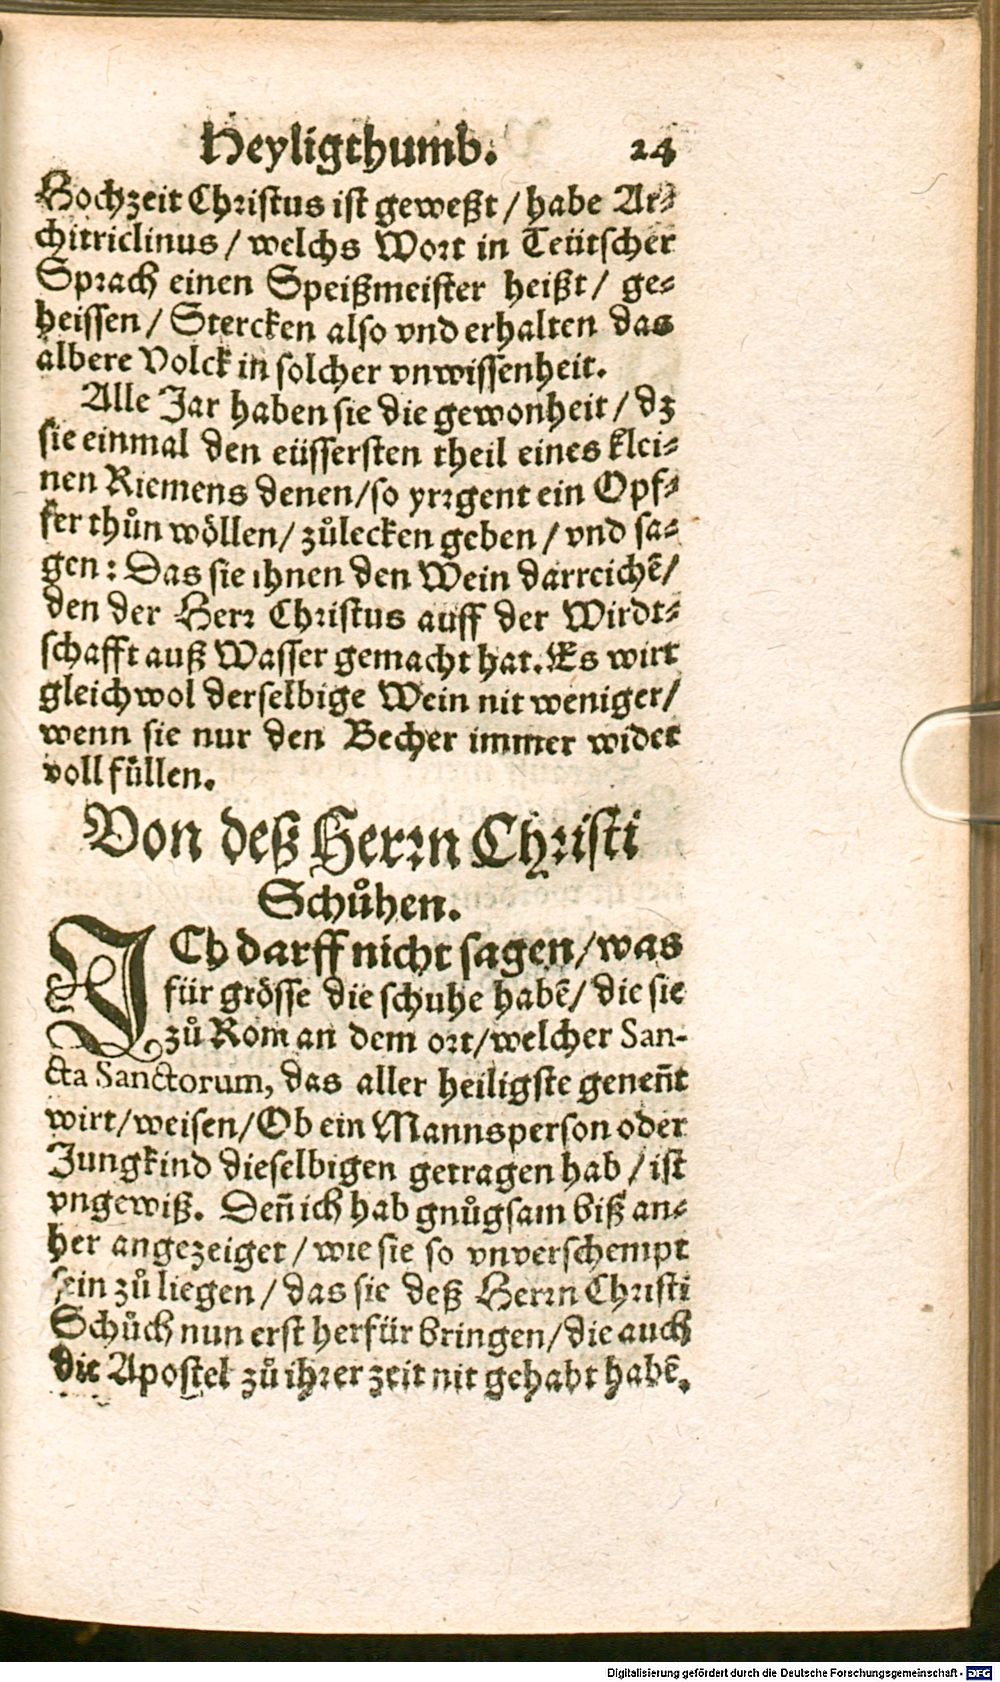 Heyligthumb. 24
Hochzeit Christus ist geweßt / habe Ar-
chitriclinus / welchs Wort in Teütscher
Sprach einen Speißmeister heißt / ge-
heissen / Stercken also vnd erhalten das
albere Volck in solcher vnwissenheit.
Alle Jar haben sie die gewonheit / dz
sie einmal den eüssersten theil eines klei-
nen Riemens denen / so yrrgent ein Opf-
fer thůn wöllen / zůlecken geben / vnd sa-
gen: Das sie ihnen den Wein darreichẽ /
den der Herr Christus auff der Wirdt-
schafft auß Wasser gemacht hat. Es wirt
gleichwol derselbige Wein nit weniger /
wenn sie nur den Becher immer wider
voll füllen.
Von deß Herrn Christi
Schůhen.
ICh darff nicht sagen / was
für grösse die schuhe habẽ / die sie
zů Rom an dem ort / welcher San-
cta Sanctorum, das aller heiligste geneñt
wirt / weisen / Ob ein Mannsperson oder
Jungkind dieselbigen getragen hab / ist
vngewiß. Deñ ich hab gnůgsam biß an-
her angezeiget / wie sie so vnverschempt
sein zů liegen / das sie deß Herrn Christi
Schůch nun erst herfür bringen / die auch
die Apostel zů ihrer zeit nit gehabt habẽ.
Digitalisierung gefördert durch die Deutsche Forschungsgemeinschaft - DFG